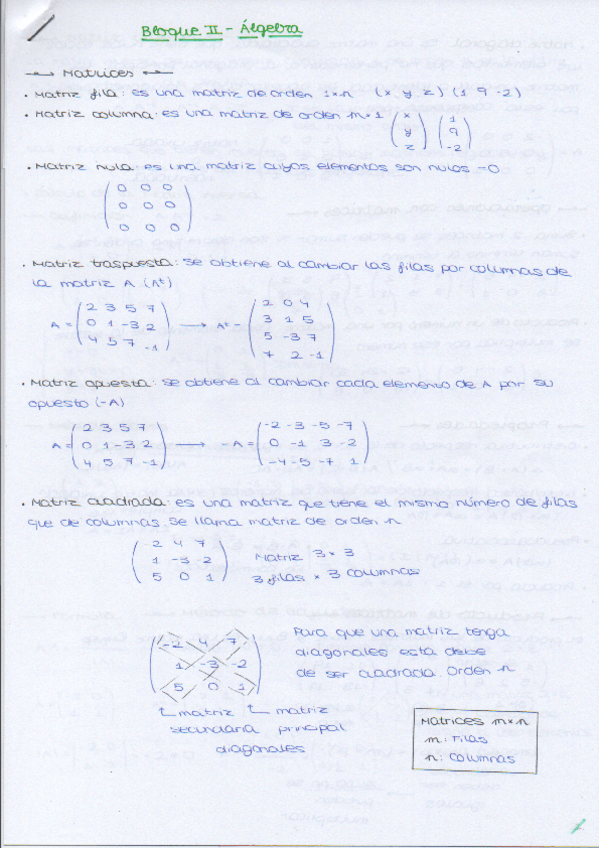 Bloque II - Álgebra
→ Matrices ←
• Matriz fila: es una matriz de orden 1×n (x y z) (1 9 -2)
• Matriz columna: es una matriz de orden m×1 (x y z) (1 9 -2)
• Matriz nula: es una matriz cuyos elementos son nulos =0
0 0 0
0 0 0
0 0 0
• Matriz traspuesta: se obtiene al cambiar las filas por columnas de
la matriz A (Aᵗ)
A = (2 3 5 7 → Aᵗ = (2 0 4
0 1 -3 2 3 1 5
4 5 7 -1) 5 -3 7
7 2 -1)
• Matriz opuesta: se obtiene al cambiar cada elemento de A por su
opuesto (-A)
A = (2 3 5 7 → -A = (-2 -3 -5 -7
0 1 -3 2 0 -1 3 -2
4 5 7 -1) -4 -5 -7 1)
• Matriz cuadrada: es una matriz que tiene el mismo número de filas
que de columnas. Se llama matriz de orden n
2 4 7
1 -3 -2 Matriz 3×3
5 0 1 3 filas × 3 columnas
-2 4 7
1 -3 -2
5 0 1
Para que una matriz tenga
diagonales esta debe
de ser cuadrada. Orden n
matriz matriz
secundaria principal
diagonales
Matrices m×n
m: filas
n: columnas